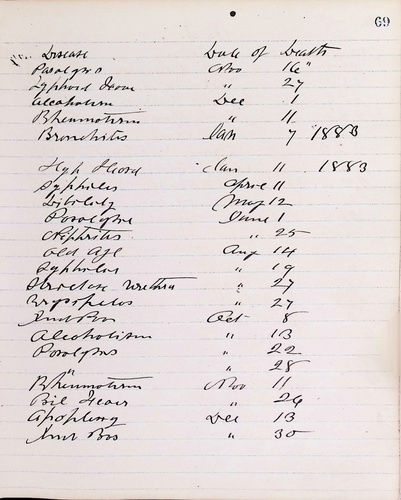 69
Disease Date of Death
Paralysis Nov 16"
Typhoid Fever " 27
Alcoholism Dec 1
Rheumatism " 11
Bronchitis Jan 7 1883
Jan 11 1883
Syphilis April 11
Debility May 12
Paralysis June 1
Nephritis " 25
Old Age Aug 14
Syphilis " 19
Stricture Urethra " 27
Erysipelas " 27
Oct 8
Alcoholism " 13
Paralysis " 22
" " 28
Rheumatism Nov 11
Bil Fever " 24
Apoplexy Dec 13
" 30